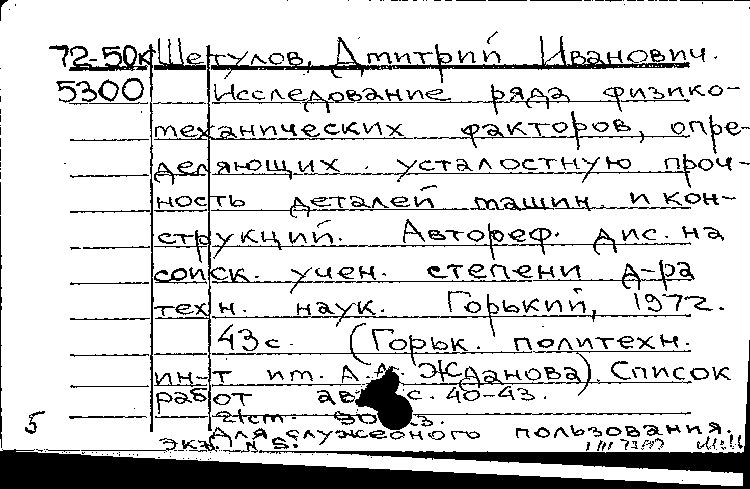 72-50к Шетулов, Дмитрий Иванович.
5300 Исследование ряда физико-
механических факторов, опре-
деляющих усталостную проч-
ность деталей машин и кон-
струкций. Автореф. дис. на
соиск. учен. степени д-ра
техн. наук. Горький, 1972.
43с. (Горьк. политехн.
ин-т им. А.А. Жданова). Список
работ с. 40-43.
5 Для служебного пользования.
экз. N 5.